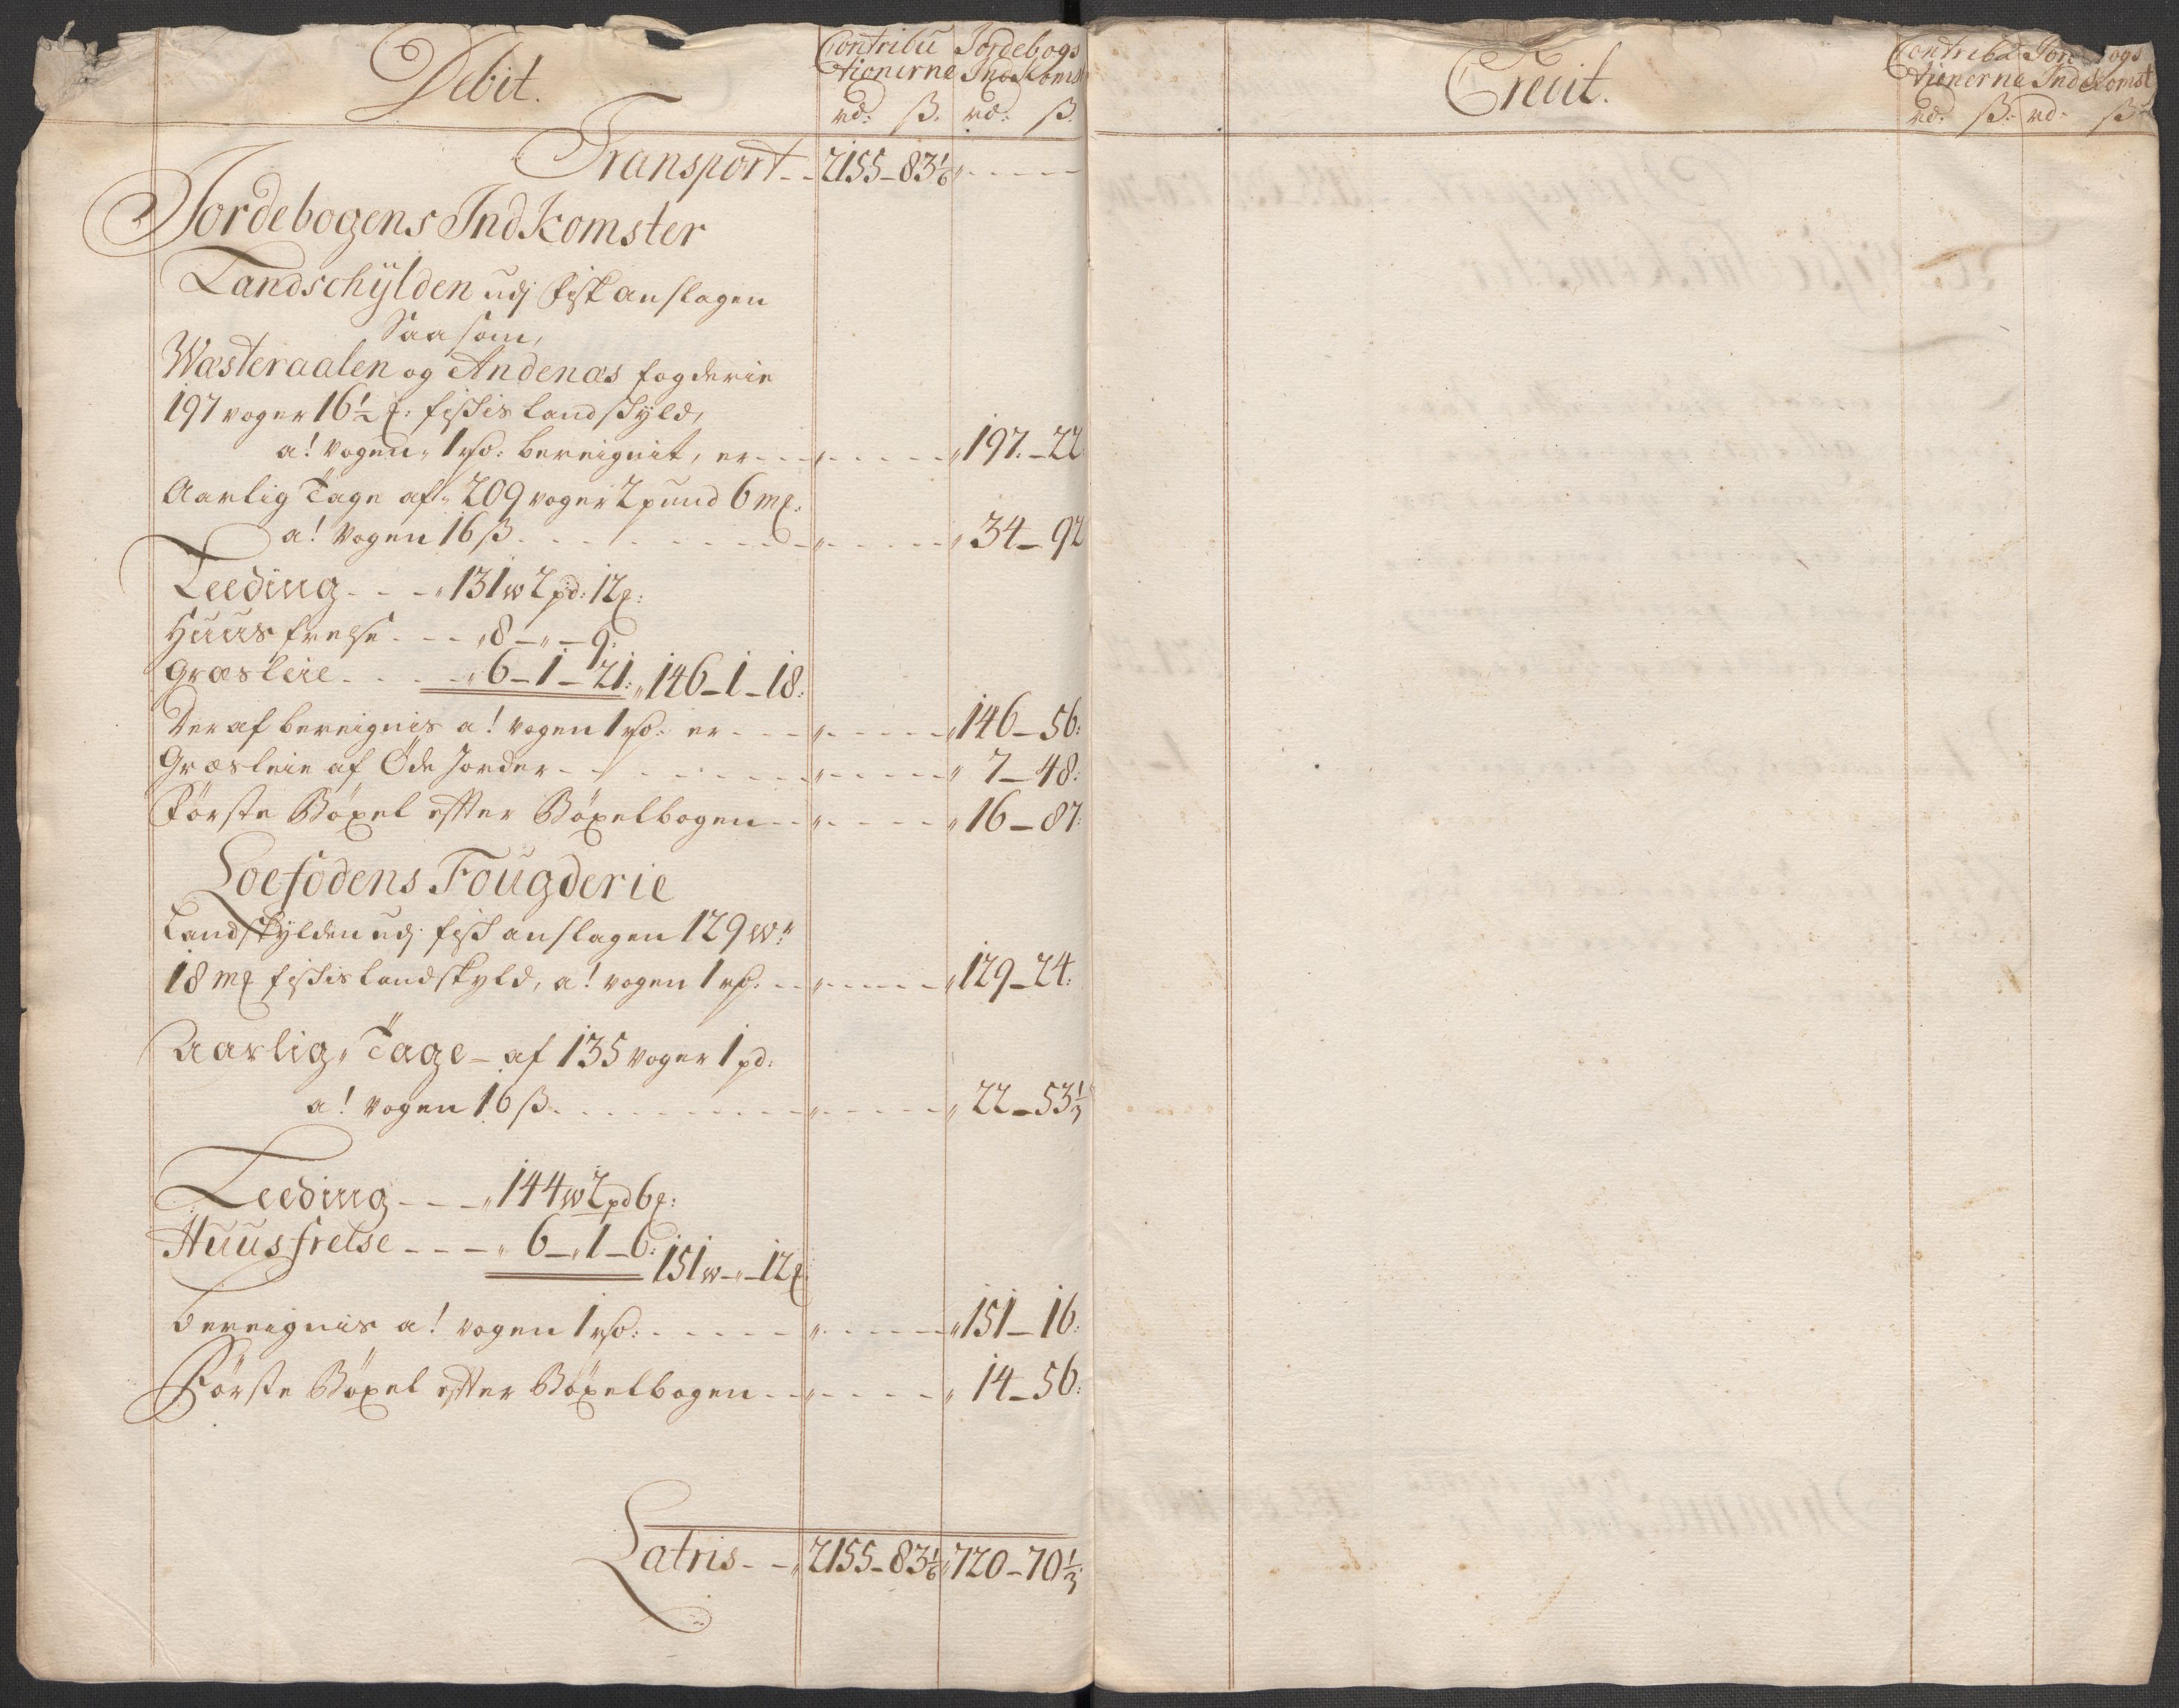 Debit.
Contribu Jordebogs
tionerne Indkomst
rd: ß. rd: ß.
Transport - - 2155 - 83 1/6 „ - - - -
Jordebogens Indkomster
Landschÿlden udj Fisk anslagen
Saasom,
Wæsteraalen og Andenæs fogderie
197 woger 16 1/2 ℔: fiskis landskyld,
a! vogen „ 1 rd: bereignit, er - - - „ - - - - „ 197. - 22
Aarlig Tage af „ 209 woger 2 pund 6 m℔:
a! Vogen 16 ß - - - - - - „ - - - - „ 34 - 92
Leeding - - - „ 131 w 2 pd: 12 ℔:
Huusfrelse - - - „ 8 - „ - 9:
Græsleie - - - - „ 6 - 1 - 21: „ 146 - 1 - 18:
Deraf bereignis a! vogen 1 rd: er - - - „ - - - - „ 146 - 56:
Græsleie af Öde Jorder - - - - - - „ - - - - „ 7 - 48:
Förste Böxel effter Böxelbogen - - „ - - - - „ 16 - 87:
Loefodens Fougderie
Landskylden udj fisk anslagen 129 w:
18 m℔ fiskis landskyld, a! vogen 1 rd: - - „ - - - - „ 129 - 24:
Aarlig „ Tage - af 135 woger 1 pd:
a! vogen 16 ß - - - - - - „ - - - - „ 22 - 53 1/3
Leeding - - - „ 144 w 2 pd 6 ℔:
Huusfrelse - - - „ 6 - „ 1 - 6: 151 w - „ - 12 ℔
Bereignis a! vogen 1 rd: - - - - - „ - - - - „ 151 - 16:
Förste Böxel effter Böxelbogen - - „ - - - - „ 14 - 56:
Latris - - „ 2155 - 83 1/6 „ 720 - 70 1/3
Credit.
Contribu Jordebogs
tionerne Indkomst
rd: ß: rd: ß